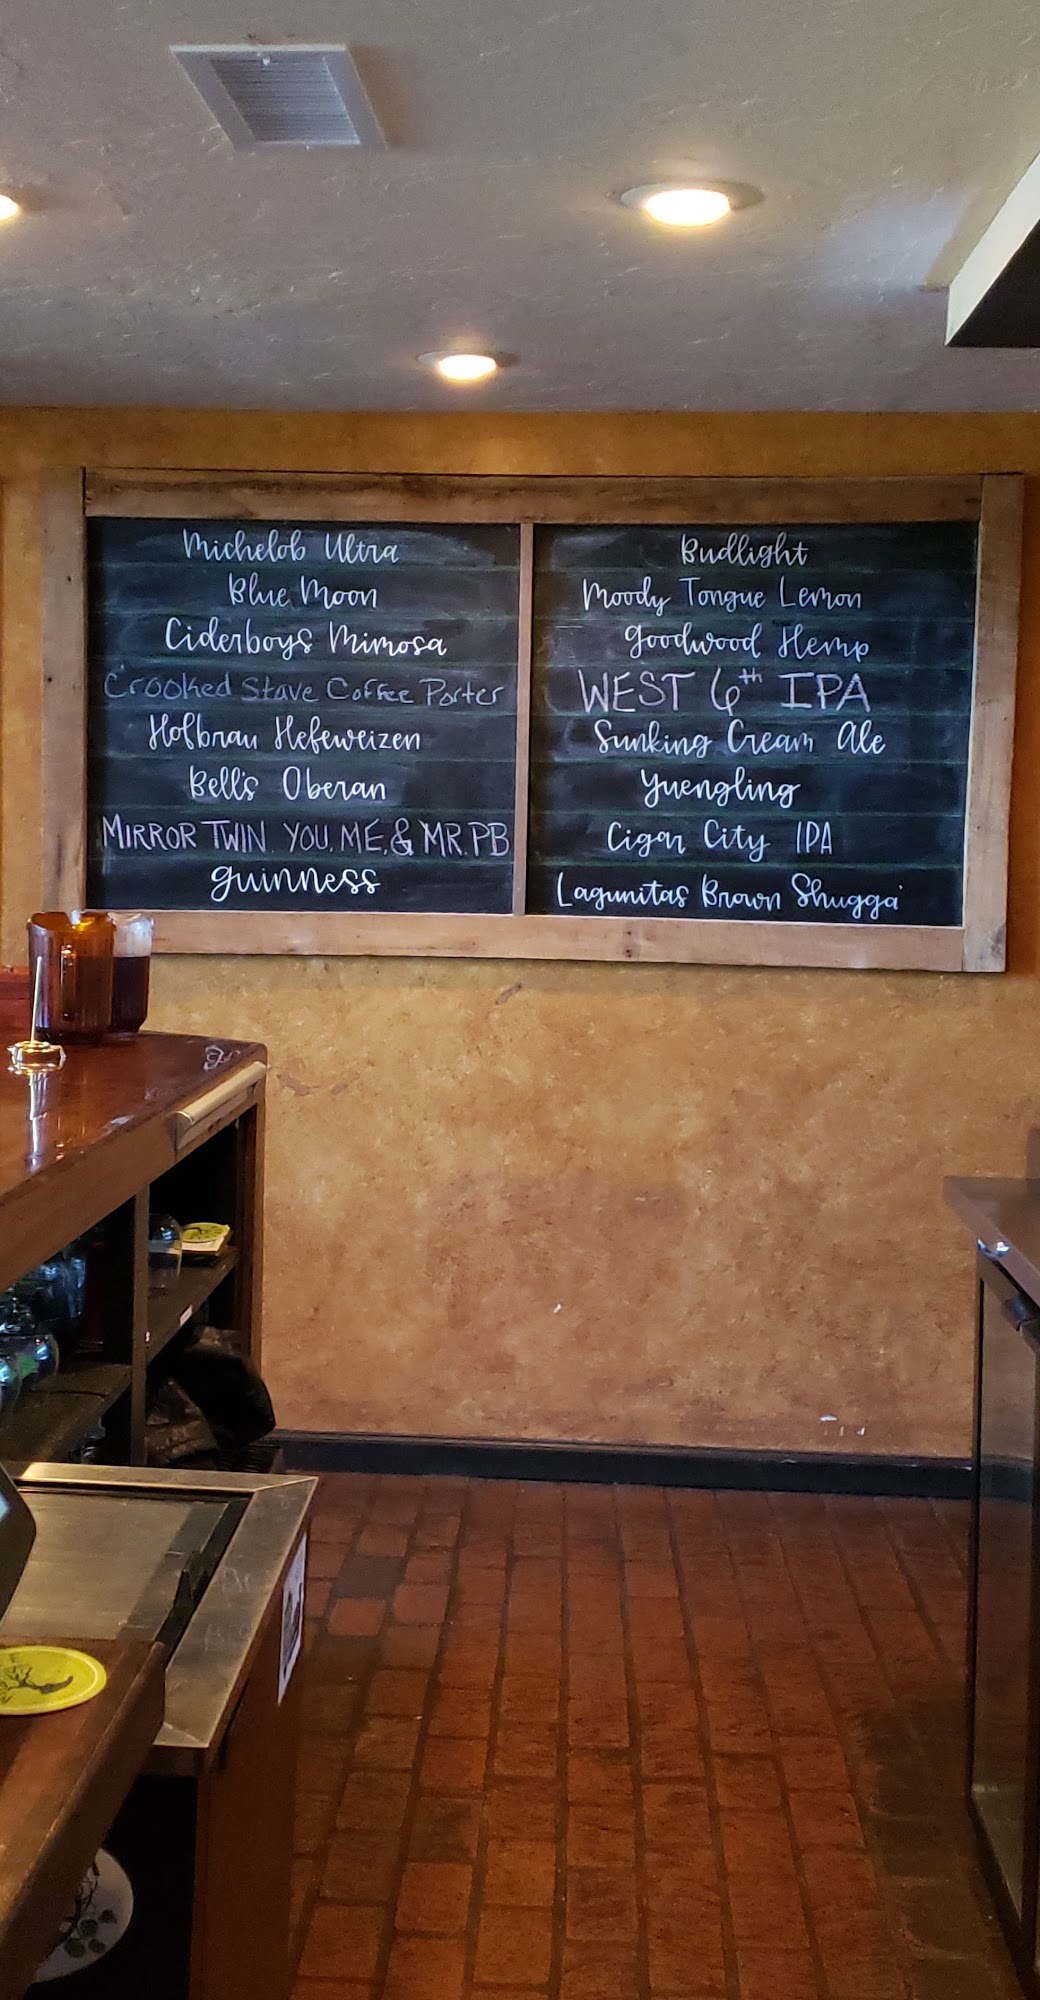 Michelob Ultra
Blue Moon
Ciderboys Mimosa
Crooked Stave Coffee Porter
Hofbrau Hefeweizen
Bell's Oberan
MIRROR TWIN. YOU, ME, & MR. PB
guinness
Budlight
Moody Tongue Lemon
Goodwood Hemp
WEST 6th IPA
Sunking Cream Ale
Yuengling
Cigar City IPA
Lagunitas Brown Shugga'